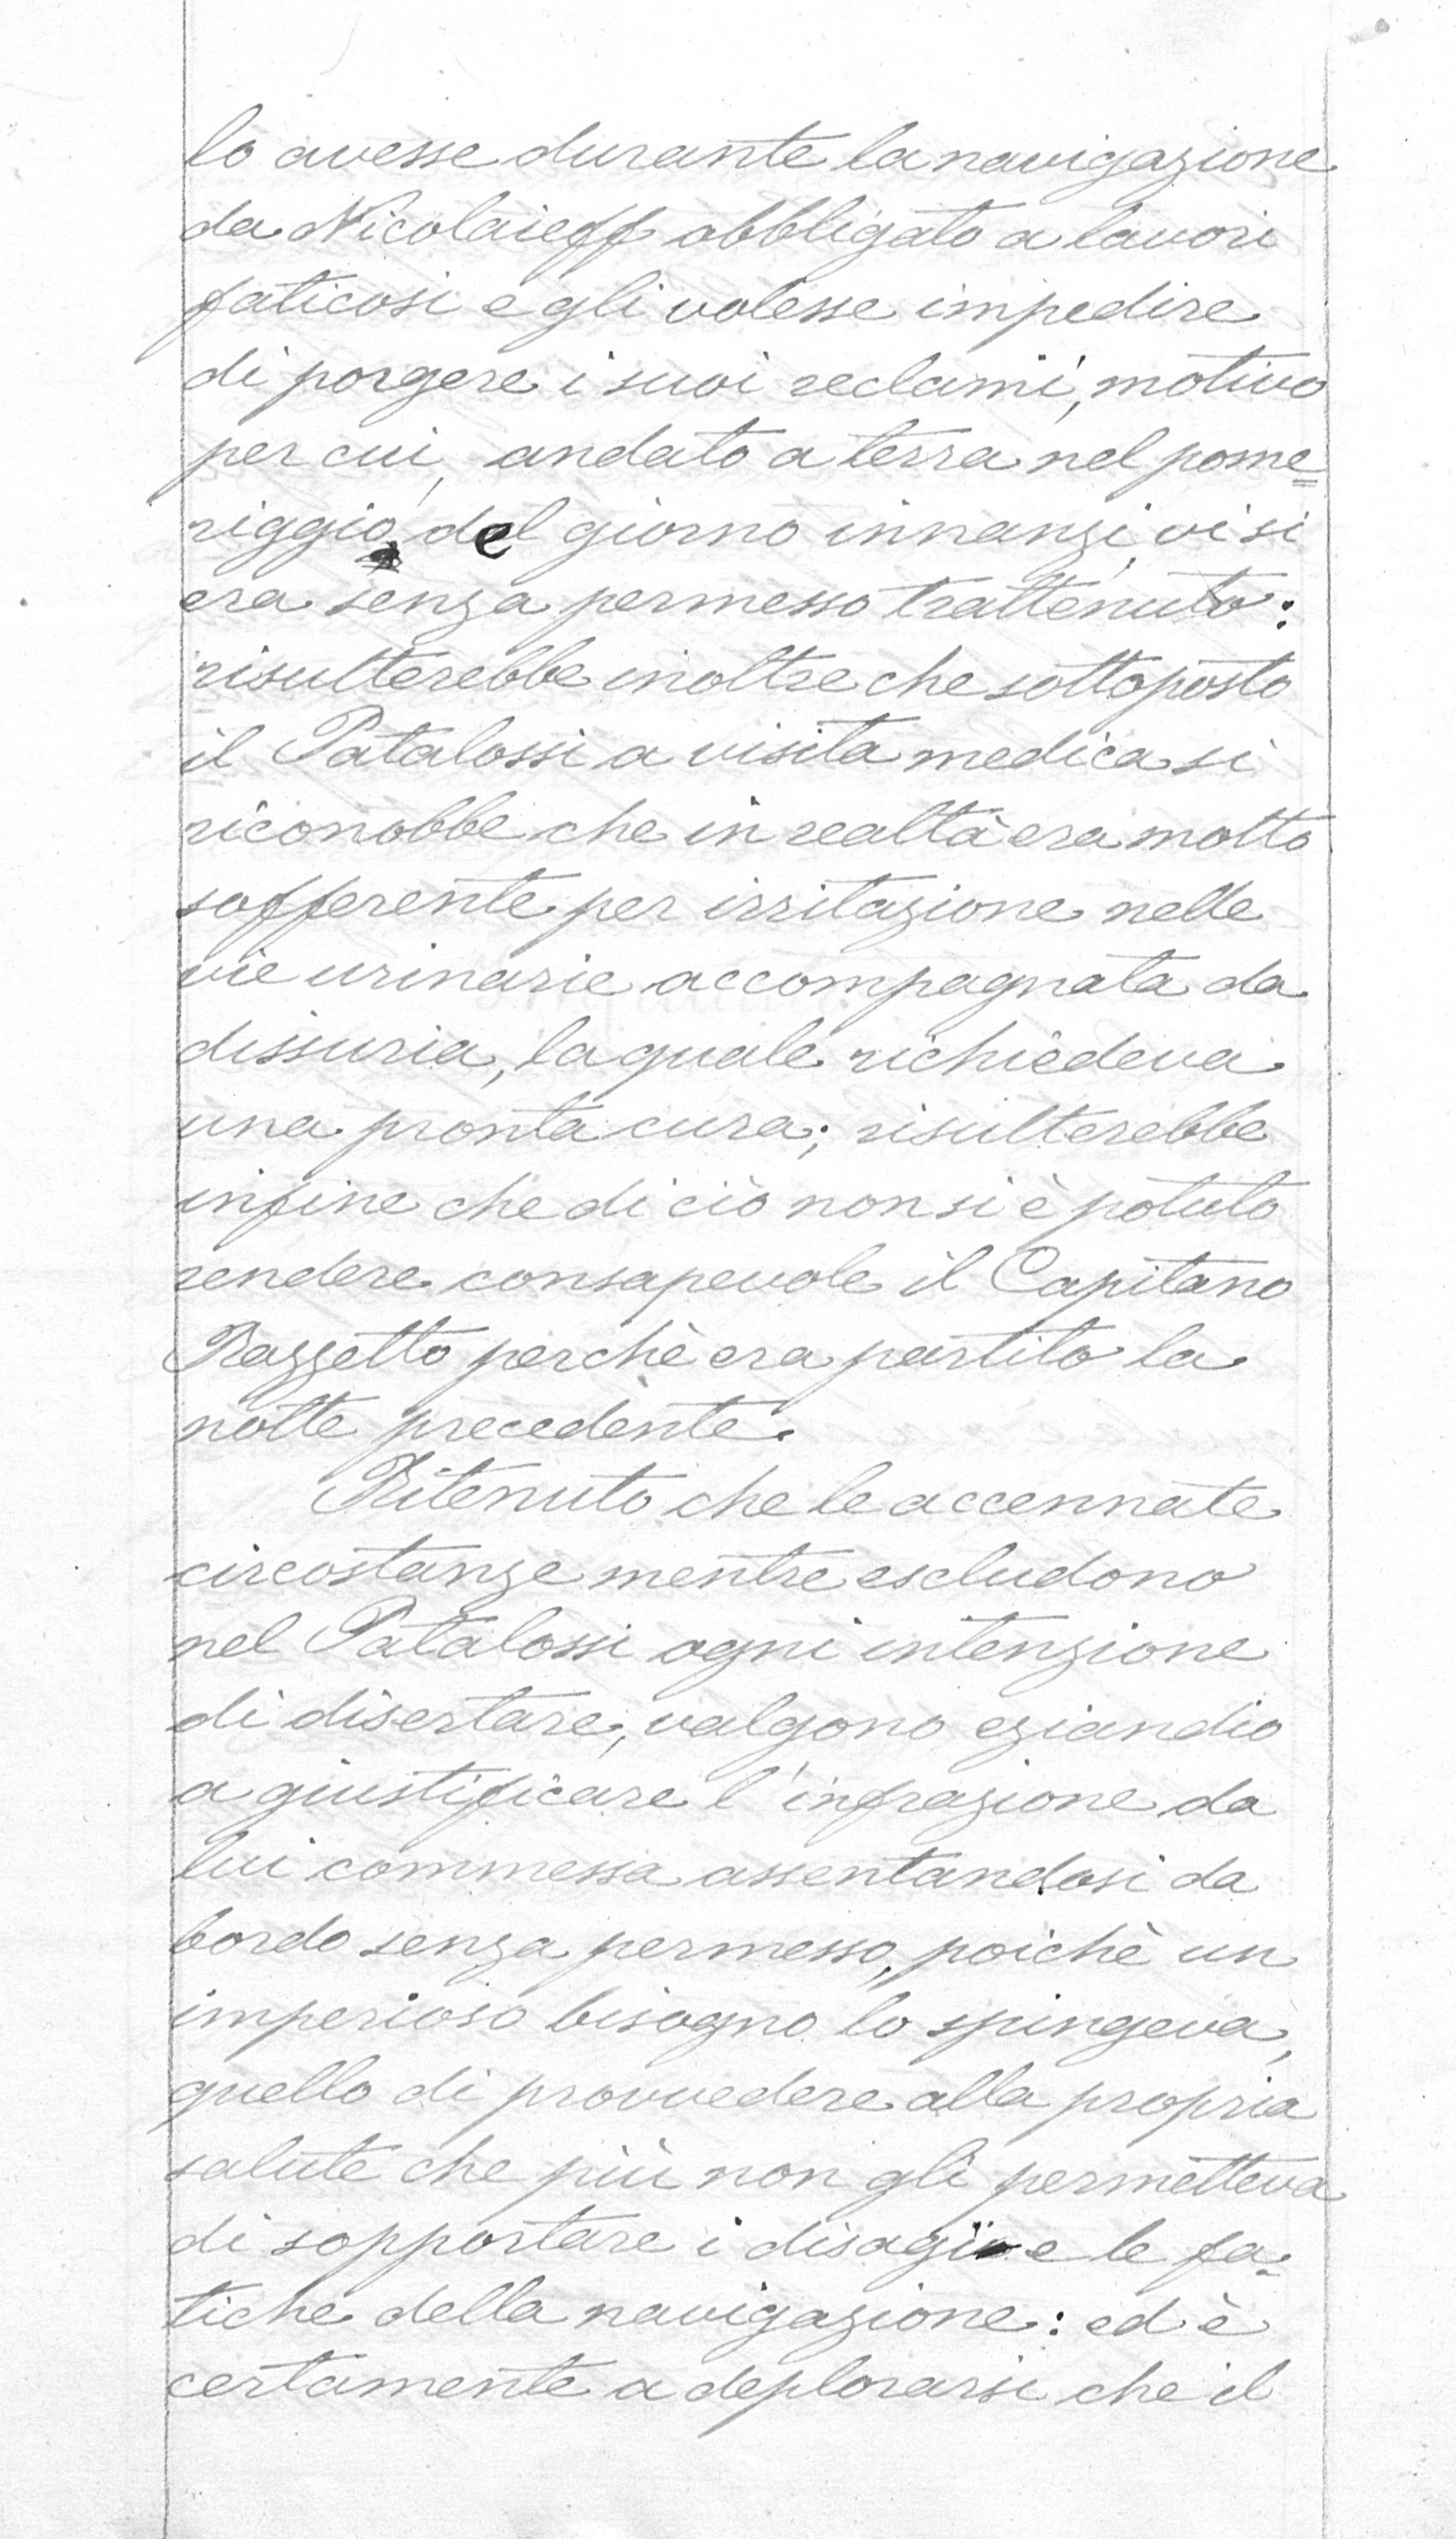 lo avesse durante la navigazione
da Nicolaieff obbligato a lavori
faticosi e gli volesse impedire
di porgere i suoi reclami, motivo
per cui, andato a terra nel pome=
riggio del giorno innanzi, vi si
era senza permesso trattenuto:
risulterebbe inoltre che sottoposto
il Patalossi a visita medica si
riconobbe che in realtà era molto
sofferente per irritazione nelle
vie urinarie accompagnata da
dissuria, la quale richiedeva
una pronta cura; risulterebbe
infine che di ciò non si è potuto
rendere consapevole il Capitano
Razzetto perchè era partito la
notte precedente.
Ritenuto che le accennate
circostanze mentre escludono
nel Patalossi ogni intenzione
di disertare, valgono eziandio
a giustificare l'infrazione da
lui commessa assentandosi da
bordo senza permesso, poichè un
imperioso bisogno lo spingeva,
quello di provvedere alla propria
salute che più non gli permetteva
di sopportare i disagi e le fa=
tiche della navigazione: ed è
certamente a deplorarsi che il